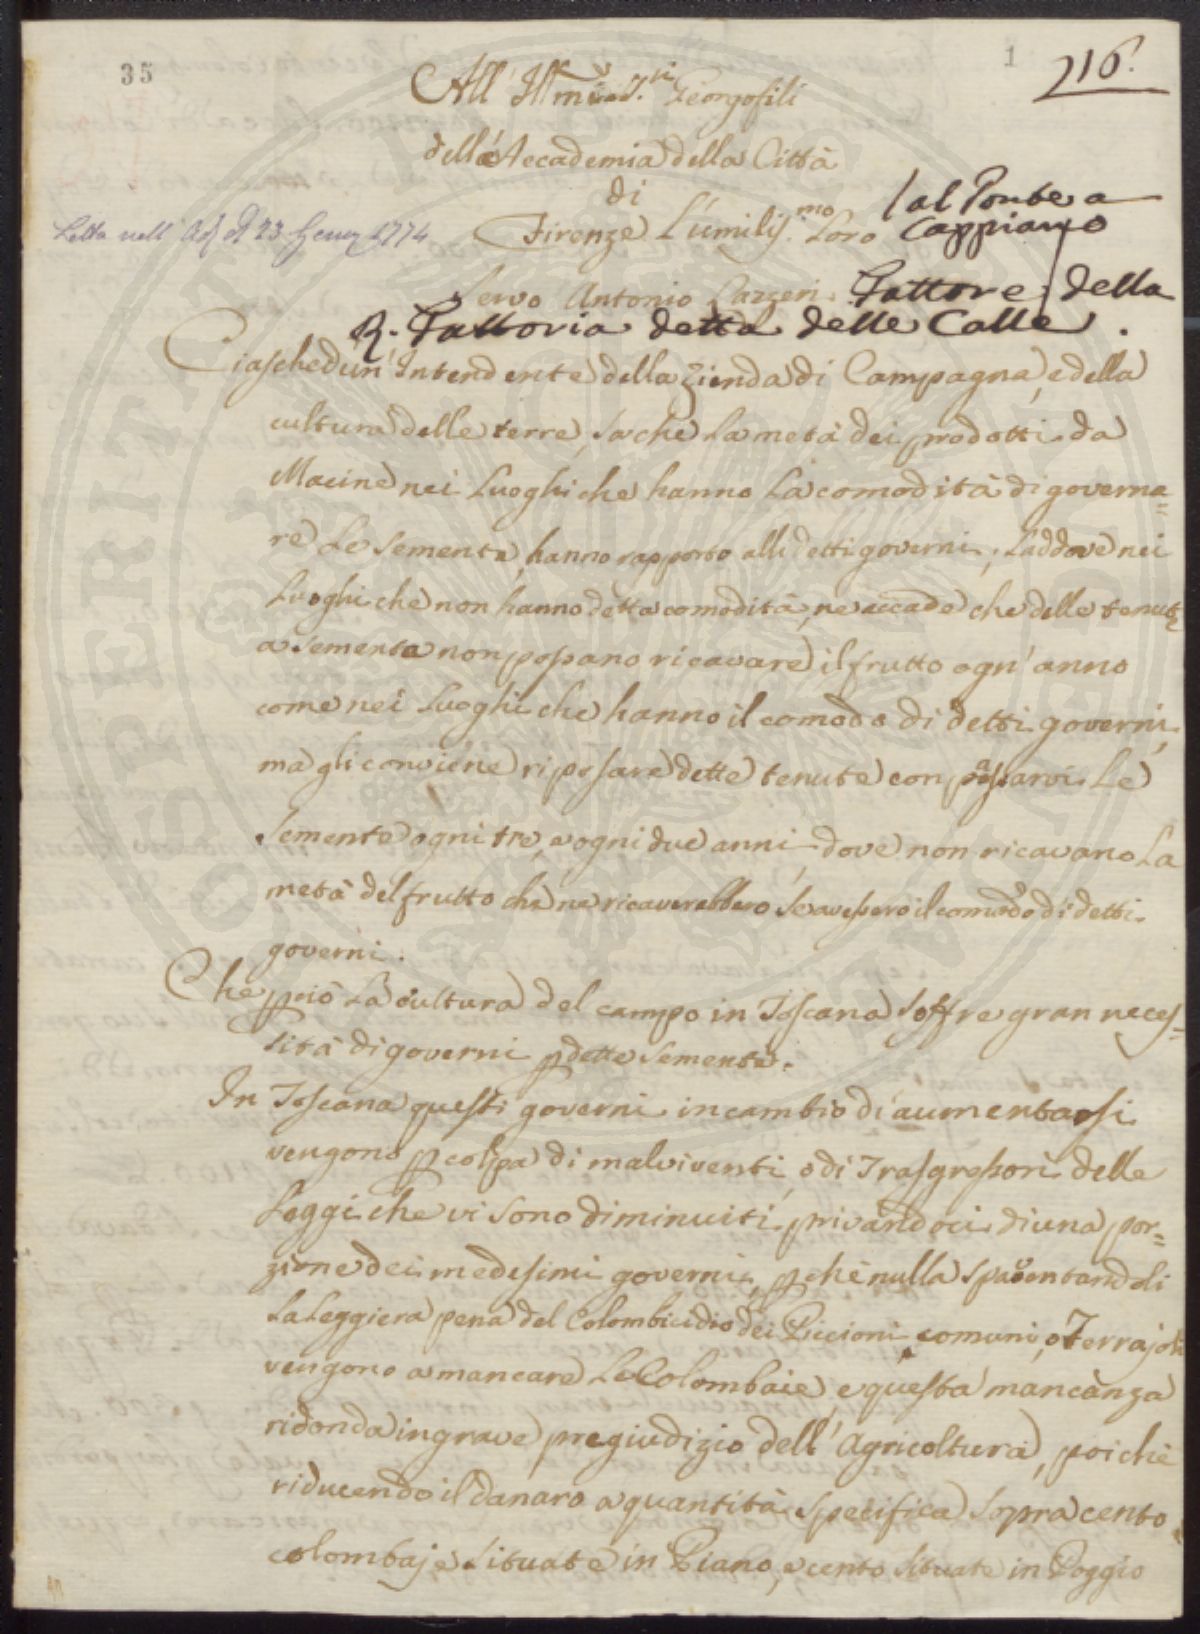 35
1
216.
All' Ill.mi Sig.ri Georgofili
dell'Accademia della Città
di
Firenze L'umilis.mo Loro
(al Ponte a
Cappiano
Letta nell' Ad. di 23 Genn. 1774
Servo Antonio Lazzeri. Fattore della
R. Fattoria detta delle Calle.
Ciaschedun' Intendente della Zienda di Campagna, e della
cultura delle terre, sà che La metà dei prodotti da
Macine nei Luoghi che hanno La comodità di governa=
re Le Sementa, hanno rapporto alli detti governi; Laddove nei
Luoghi che non hanno detta comodità, ne accade che delle tenute
a Sementa non possano ricavare il frutto ogn' anno
come nei Luoghi che hanno il comodo di detti governi,
ma gli conviene riposare dette tenute con passarvi Le
Semente ogni tre, o ogni due anni, dove non ricavano La
metà del frutto che ne ricaverebbero Se avessero il comodo di detti
governi.
Che però La cultura del campo in Toscana Soffre gran neces=
sità di governi p dette Semente.
In Toscana questi governi in cambio di aumentarsi
vengono p colpa di malviventi, o di Trasgressori delle
Leggi che vi Sono diminuiti, privandoci di una por=
zione dei medesimi governi, pchè nulla Spaventandoli
La Leggiera pena del Colombicidio dei Piccioni comuni, o Terrajoli
vengono a mancare Le Colombaie, e questa mancanza
ridonda in grave pregiudizio dell' Agricoltura, poichè
riducendo il danaro a quantità Specifica Sopra cento
colombaje Situate in Piano, e cento Situate in Poggio